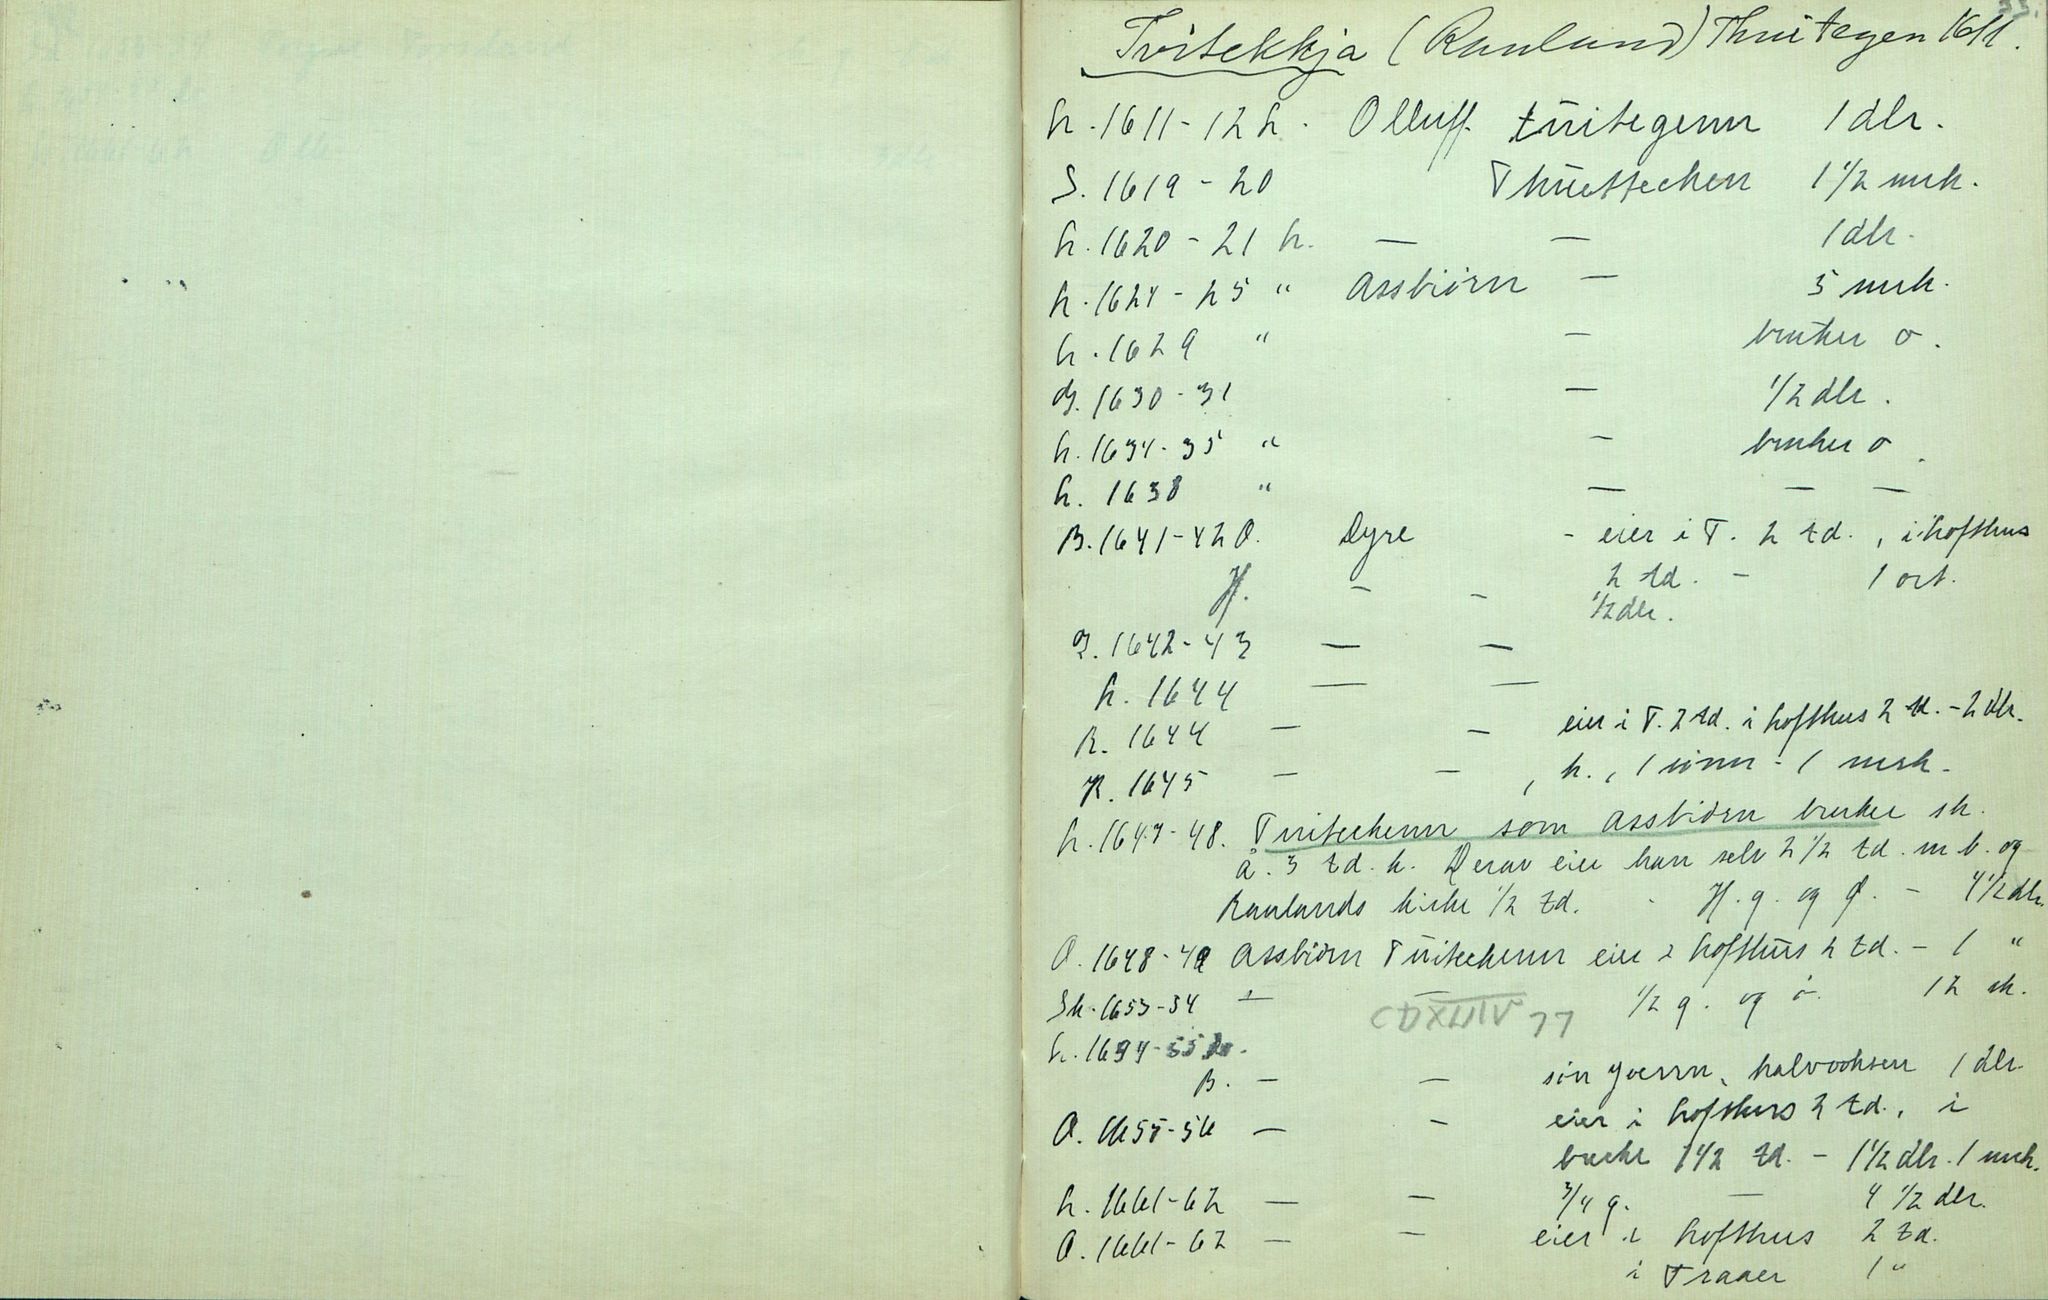 Tvitekkja (Rauland) Thuitegen 1611.
h. 1611-12 h. Olluff tüitegenn 1 dlr.
S. 1619-20 Thüettechen 1 1/2 mrk.
h. 1620-21 h. — — 1 dlr.
h. 1624-25 " Assbiørn — 5 mrk.
h. 1629 " — bruker ø.
1630-31 — 1/2 dlr.
h. 1634-35 " — bruker ø.
h. 1638 " — — —
B. 1641-42 O. Dyre - eier i T. 2 td., i hofthus
H. - - 2 td. - 1 ort.
1/2 dlr.
1642-43 — —
h. 1644 — —
R. 1644 — — eier i T. 2 td. i hofthus 2 td. - 2 dlr.
R. 1645 — — , h., 1 sønn - 1 mrk.
h. 1647-48. Tuitechenn som Assbiörn bruker sk.
å. 3 td. k. Derav eier han selv 2 1/2 td. m b. og
Raulands kirke 1/2 td. - H. g. og Ø. - 4 1/2 dlr.
O. 1648-49 Assbiörn Tüitechenn eier i hofthus 2 td. - 1 "
Sk. 1653-54 — — 1/2 g. og ø. 12 sk.
77
h. 1654-55
B. — — sin halvvoksen 1 dlr.
O. 1655-56 — - eier i hofthus 2 td., i
1 1/2 td. - 1 1/2 dlr. 1 mrk.
h. 1661-62 — — 3/4 g. — 4 1/2 dlr.
O. 1661-62 — - eier i hofthus 2 td.
i Traaer 1 "